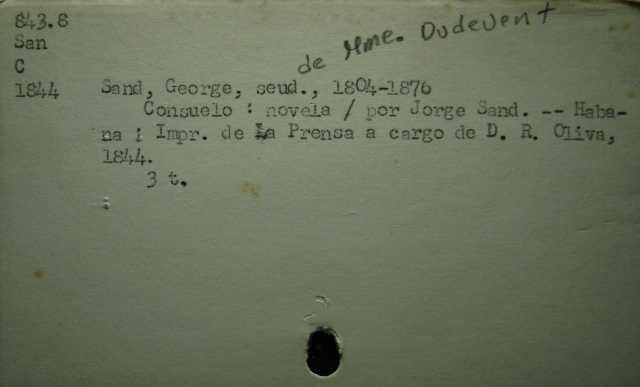 843.8
San
C
1844
de Mme. Dudevent
Sand, George, seud., 1804-1876
Consuelo : novela / por Jorge Sand. -- Haba-
na : Impr. de La Prensa a cargo de D. R. Oliva,
1844.
3 t.
: